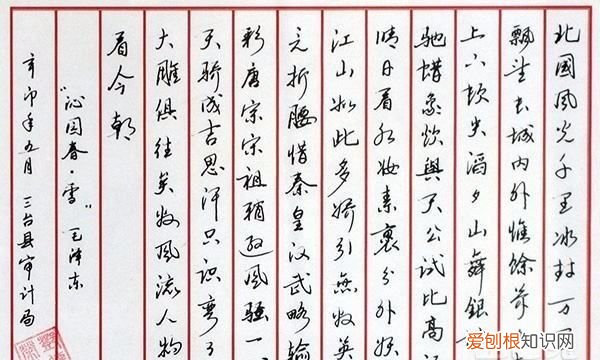 北國風光千里冰封万里
飘望长城内外惟餘莽
上下顿失滔々山舞銀
驰蜡象欲與天公試比高
晴日看红妆素裹分外妖
江山如此多娇引無数英
竞折腰惜秦皇汉武略输
彩唐宗宋祖稍逊风骚一
天骄成吉思汗只識弯弓
大雕俱往矣数风流人物
看今朝
"沁园春·雪" 毛泽东
辛卯年九月 三台县审计局
爱刨根知识网